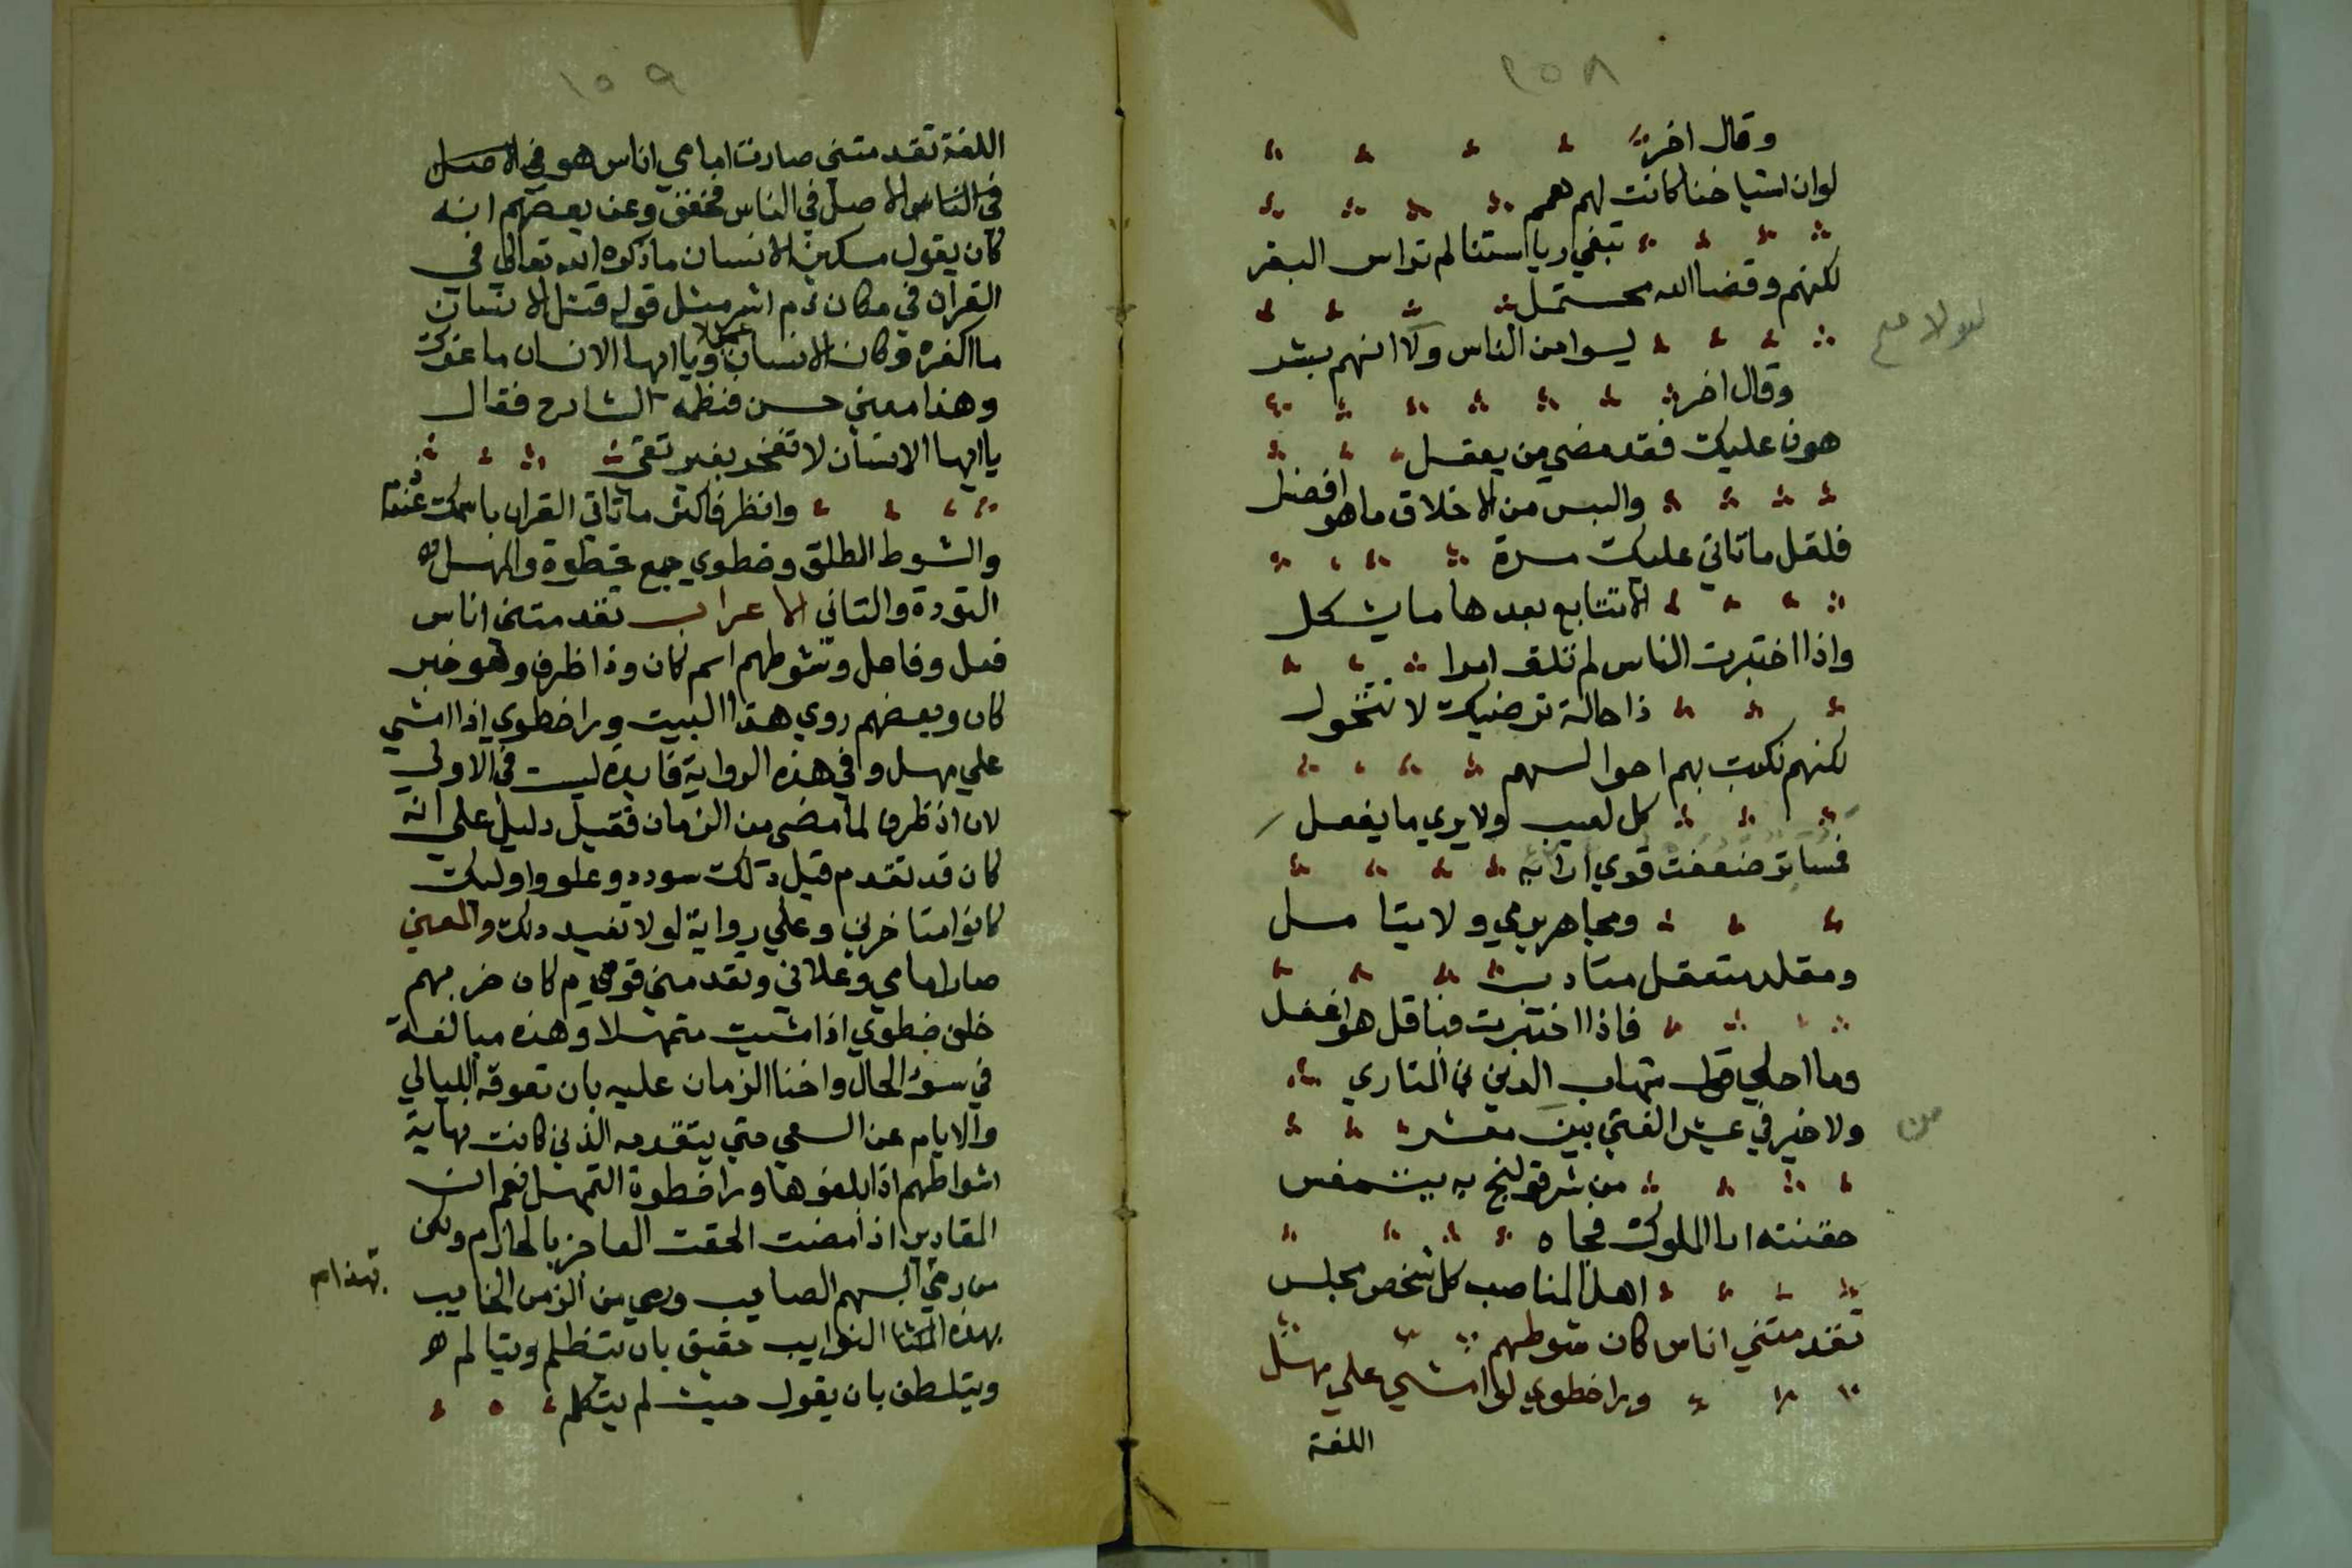 ١٥٨
وقال اخر
لوان اشياخنا كانت لهم همم
تبغي رياستنا لم تراس البقر
لكنهم وقضا الله محتمل
ليسوا من الناس ولا انهم بشر
وقال اخر
هون عليك فقد مضي من يعقل
والبس من الاخلاق ما هو افضل
فلقل ما تاتي عليك مسرة
الا تتابع بعدها ما يشكل
واذا اختبرت الناس لم تلق امرا
ذا حالة ترضيك لا تتحول
لكنهم نكبت بهم احوالهم
كل لعيب ولا يري ما يفعل
ضعفت قوي
ومجاهر يرمي ولا يتامل
ومقلد متعقل متادب
فاذا اختبرت فباقل هو اعقل
وما احلي قول شهاب الدين
ولا خير في عيش الفتي بين معشر
من
من شر قولنج به يتنمفس
حقنته ابنا الملوك فجاه
اهل المناصب كل شخص مجلس
تقدمتني اناس كان شوطهم
ورا خطوي لو امشي علي مهل
اللغة
١٥٩
اللغة تقدمتني صارت امامي اناس هو في الاصل
في الناس الاصل في الناس فخفف وعن بعضهم انه
كان يقول مسكين الانسان ما ذكره الله تعالي في
القران في مكان ذم اشر مثل قوله قتل الانسان
ما اكفره وكان الانسان عجولا ويا ايها الانسان ما غرك
وهذا معني حسن فنظمه الشارح فقال
يا ايها الانسان لا تفخر بغير تقي
وانظر فاكثر ما تاتي القران باسمك
والشوط الطلق وخطوي جمع خطوة والمهل
التودة والتاني الاعراب تقدمتني اناس
فعل وفاعل وشوطهم اسم كان وذا ظرف وهو خبر
كان وبعضهم روي هذا البيت ورا خطوي اذا امشي
علي مهل وفي هذه الرواية فايدة ليست في الاولي
لان اذ ظرف لما مضي من الزمان فقيل دليل علي انه
كان قد تقدم قبل ذلك سودد وعلو واوليك
كانوا متاخرين وعلي رواية لو لا تفيد ذلك والمعني
صار امامي وعلاني وتقدمني قوم كان خربهم
خلف خطوي اذا مشيت متمهلا وهذه مبالغة
في سوء الحال واخنا الزمان عليه بان تعوقه الليالي
والايام عن السعي حتي يتقدمه الذين كانت نهاية
اشواطهم اذا بلغوها ورا خطوة التمهل نعم ان
المقادير اذا مضت الحقت العاجز بالحازم ولكن
من رمي السهم الصايب ورمي من الزمن الخايب
بهذه النوايب حقيق بان يتظلم ويتالم
ويتلطف بان يقول حيث لم يتكلم